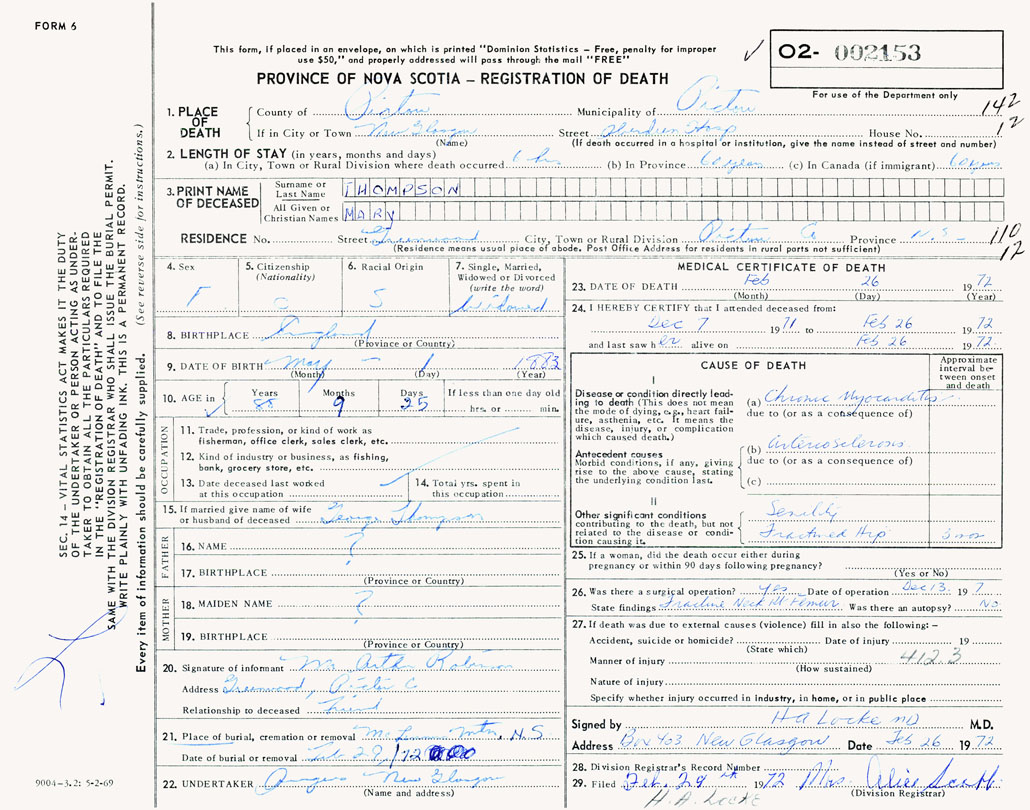 FORM 6
This form, if placed in an envelope, on which is printed "Dominion Statistics – Free, penalty for improper
use $50," and properly addressed will pass through the mail "FREE"
✓ O2- 002153
For use of the Department only
PROVINCE OF NOVA SCOTIA – REGISTRATION OF DEATH
1. PLACE OF DEATH
County of Pictou Municipality of Pictou 142
If in City or Town New Glasgow Street Aberdeen Hosp House No. 12
(Name) (If death occurred in a hospital or institution, give the name instead of street and number)
2. LENGTH OF STAY (in years, months and days)
(a) In City, Town or Rural Division where death occurred 6 hrs (b) In Province 60 years (c) In Canada (if immigrant) 60 years
3. PRINT NAME OF DECEASED
Surname or Last Name THOMPSON
All Given or Christian Names MARY
RESIDENCE No. Street Greenwood City, Town or Rural Division Pictou Co Province N.S. 110
(Residence means usual place of abode. Post Office Address for residents in rural parts not sufficient) 12
4. Sex F
5. Citizenship (Nationality) C
6. Racial Origin S
7. Single, Married, Widowed or Divorced (write the word) Widowed
8. BIRTHPLACE England
(Province or Country)
9. DATE OF BIRTH May – 1 1883
(Month) (Day) (Year)
10. AGE in Years 88 Months 9 Days 25 If less than one day old
hrs. or min.
OCCUPATION
11. Trade, profession, or kind of work as
fisherman, office clerk, sales clerk, etc.
12. Kind of industry or business, as fishing,
bank, grocery store, etc.
13. Date deceased last worked
at this occupation
14. Total yrs. spent in
this occupation
15. If married give name of wife
or husband of deceased George Thompson
FATHER
16. NAME ?
17. BIRTHPLACE
(Province or Country)
MOTHER
18. MAIDEN NAME ?
19. BIRTHPLACE
(Province or Country)
20. Signature of informant Mrs Arthur Robinson
Address Greenwood, Pictou C
Relationship to deceased Friend
21. Place of burial, cremation or removal Mtn, N.S.
Date of burial or removal Feb 29/72
22. UNDERTAKER New Glasgow
(Name and address)
MEDICAL CERTIFICATE OF DEATH
23. DATE OF DEATH Feb 26 1972
(Month) (Day) (Year)
24. I HEREBY CERTIFY that I attended deceased from:
Dec 7 1971 to Feb 26 1972
and last saw her alive on Feb 26 1972
CAUSE OF DEATH
Approximate interval between onset and death
I
Disease or condition directly leading
to death (This does not mean
the mode of dying, e.g., heart failure,
asthenia, etc. It means the
disease, injury, or complication
which caused death.)
(a) Chronic Myocarditis
due to (or as a consequence of)
Antecedent causes
Morbid conditions, if any, giving
rise to the above cause, stating
the underlying condition last.
(b) Arteriosclerosis
due to (or as a consequence of)
(c)
II
Other significant conditions
contributing to the death, but not
related to the disease or condition
causing it.
Senility
Fractured Hip 3 mos
25. If a woman, did the death occur either during
pregnancy or within 90 days following pregnancy?
(Yes or No)
26. Was there a surgical operation? yes Date of operation Dec 13 197
State findings Fracture Neck Rt Femur Was there an autopsy? No
27. If death was due to external causes (violence) fill in also the following: –
Accident, suicide or homicide? Date of injury 19
(State which)
Manner of injury 412.3
(How sustained)
Nature of injury
Specify whether injury occurred in industry, in home, or in public place
Signed by H A Locke MD M.D.
Address Box 403 New Glasgow Date Feb 26 1972
28. Division Registrar's Record Number
29. Filed Feb. 29th 1972 Mrs. Alice Scott
(Division Registrar)
H. A. LOCKE
SEC. 14 – VITAL STATISTICS ACT MAKES IT THE DUTY
OF THE UNDERTAKER OR PERSON ACTING AS UNDER-
TAKER TO OBTAIN ALL THE PARTICULARS REQUIRED
IN THE "REGISTRATION OF DEATH" AND TO FILE THE
SAME WITH THE DIVISION REGISTRAR WHO SHALL ISSUE THE BURIAL PERMIT.
WRITE PLAINLY WITH UNFADING INK. THIS IS A PERMANENT RECORD.
Every item of information should be carefully supplied. (See reverse side for instructions.)
9004-3.2: 5-2-69